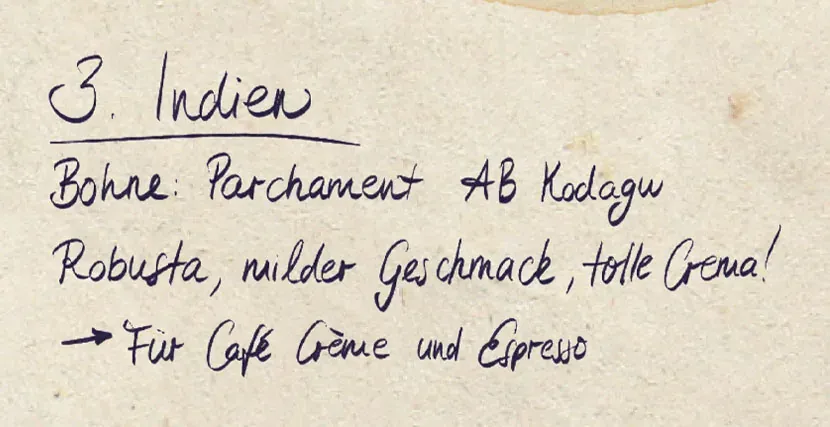 3. Indien
Bohne: Parchament AB Kodagu
Robusta, milder Geschmack, tolle Crema!
→ Für Café Crème und Espresso